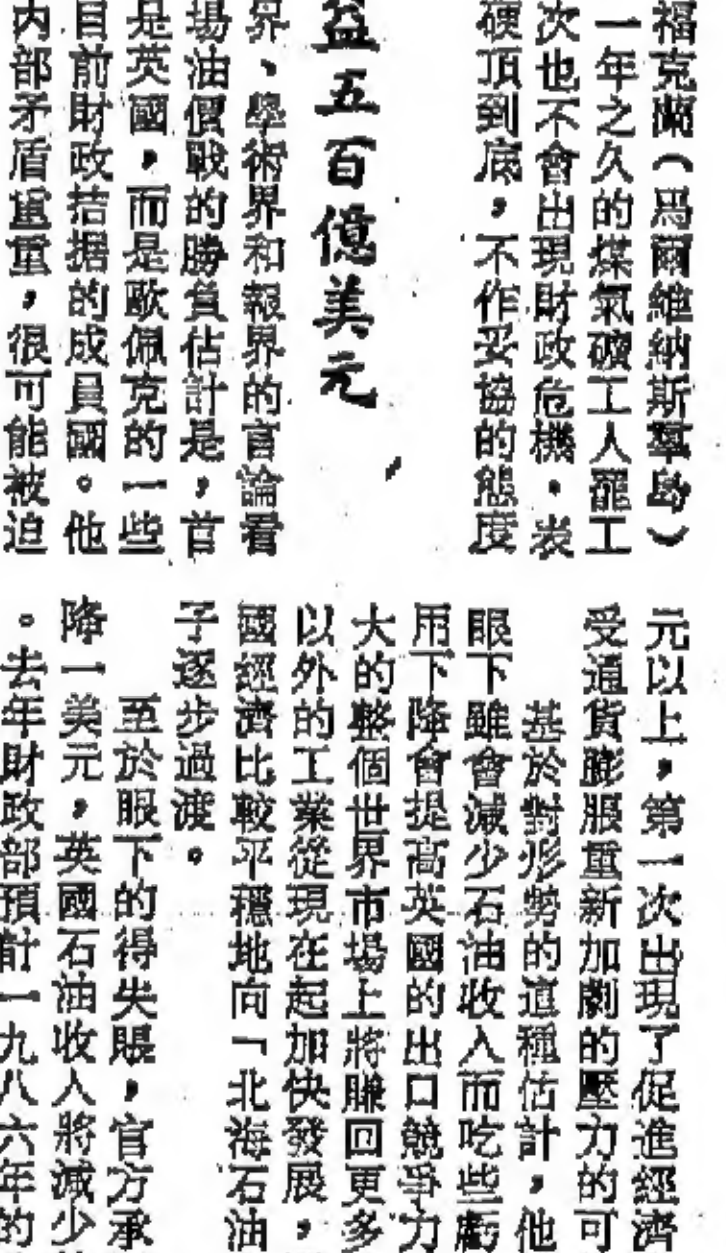 福克蘭（馬爾維納斯羣島）
一年之久的煤氣礦工人罷工
次也不會出現財政危機。表
硬頂到底，不作妥協的態度
益五百億美元
界、學術界和報界的言論看
場油價戰的勝負估計是，首
是英國，而是歐佩克的一些
目前財政拮据的成員國。他
內部矛盾重重，很可能被迫
元以上，第一次出現了促進經濟
受通貨膨服重新加劇的壓力的可
基於對形勢的這種估計，他
眼下雖會減少石油收入而吃些虧
用下降會提高英國的出口競爭力
大的整個世界市場上將賺回更多
以外的工業從現在起加快發展，
國經濟比較平穩地向「北海石油
子逐步過渡。
至於眼下的得失賬，官方承
降一美元，英國石油收入將減少
。去年財政部預計一九八六年的